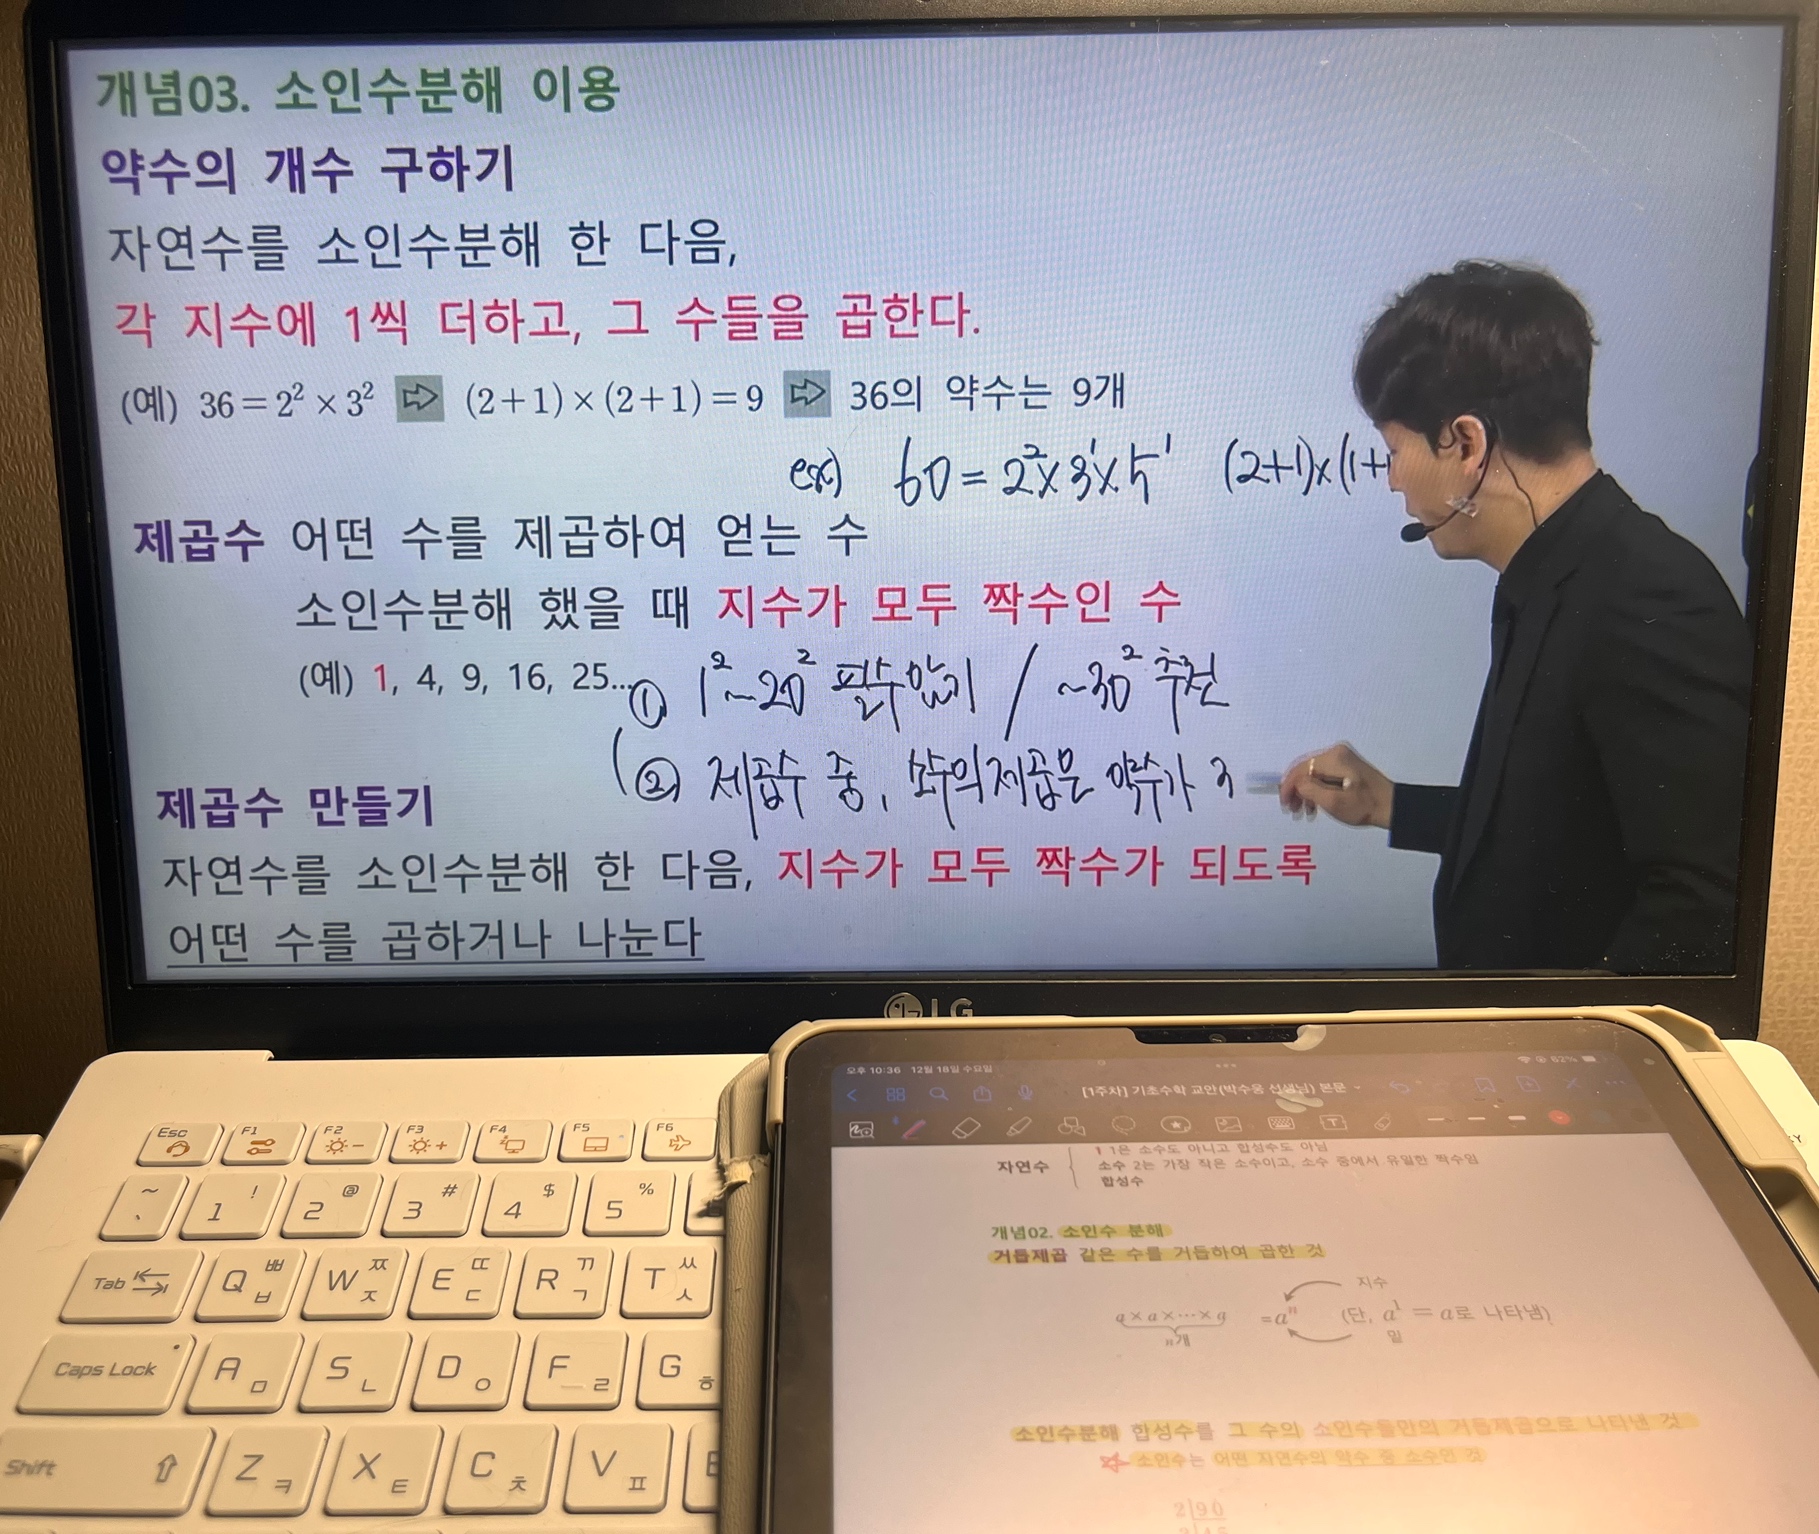 개념03. 소인수분해 이용
약수의 개수 구하기
자연수를 소인수분해 한 다음,
각 지수에 1씩 더하고, 그 수들을 곱한다.
(예) 36=2²×3² ⇨ (2+1)×(2+1)=9 ⇨ 36의 약수는 9개
ex) 60=2²×3¹×5¹ (2+1)×(1+
제곱수 어떤 수를 제곱하여 얻는 수
소인수분해 했을 때 지수가 모두 짝수인 수
(예) 1, 4, 9, 16, 25...
① 1²~20² 필수암기 / ~30² 추천
② 제곱수 중, 소수의 제곱은 약수가 3
제곱수 만들기
자연수를 소인수분해 한 다음, 지수가 모두 짝수가 되도록
어떤 수를 곱하거나 나눈다
LG
오후 10:36 12월 18일 수요일 62%
[1주차] 기초수학 교안(박수웅 선생님) 본문
1 1은 소수도 아니고 합성수도 아님
자연수 소수 2는 가장 작은 소수이고, 소수 중에서 유일한 짝수임
합성수
개념02. 소인수 분해
거듭제곱 같은 수를 거듭하여 곱한 것
지수
a×a×⋯×a =aⁿ (단, a¹=a로 나타냄)
n개 밑
소인수분해 합성수를 그 수의 소인수들만의 거듭제곱으로 나타낸 것
소인수는 어떤 자연수의 약수 중 소수인 것
2 90
45
Esc F1 F2 F3 F4 F5 F6
~ ` ! 1 @ 2 # 3 $ 4 % 5
Tab Q ㅃ ㅂ W ㅉ ㅈ E ㄸ ㄷ R ㄲ ㄱ T ㅆ ㅅ
Caps Lock A ㅁ S ㄴ D ㅇ F ㄹ G ㅎ
Shift Z ㅋ X ㅌ C ㅊ V ㅍ